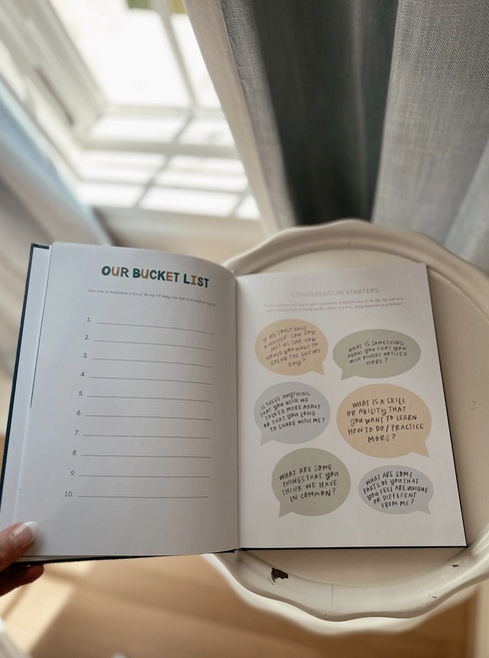 OUR BUCKET LIST
Take time to
1.
2.
3.
4.
5.
6.
7.
8.
9.
10.
CONVERSATION STARTERS
IF WE COULD HAVE
ANOTHER
JUST US
WOULD YOU WANT TO
SPEND THE ENTIRE
DAY?
WHAT IS SOMETHING
ABOUT YOU THAT YOU
WISH OTHERS NOTICED
MORE?
IS THERE ANYTHING
THAT YOU WISH WE
TALKED MORE ABOUT
OR THAT YOU LONG
TO SHARE WITH ME?
WHAT IS A SKILL
OR ABILITY THAT
YOU WANT TO LEARN
HOW TO DO / PRACTICE
MORE?
WHAT ARE SOME
THINGS THAT YOU
THINK WE HAVE
IN COMMON?
WHAT ARE SOME
PARTS OF YOU THAT
YOU FEEL ARE UNIQUE
OR DIFFERENT
FROM ME?